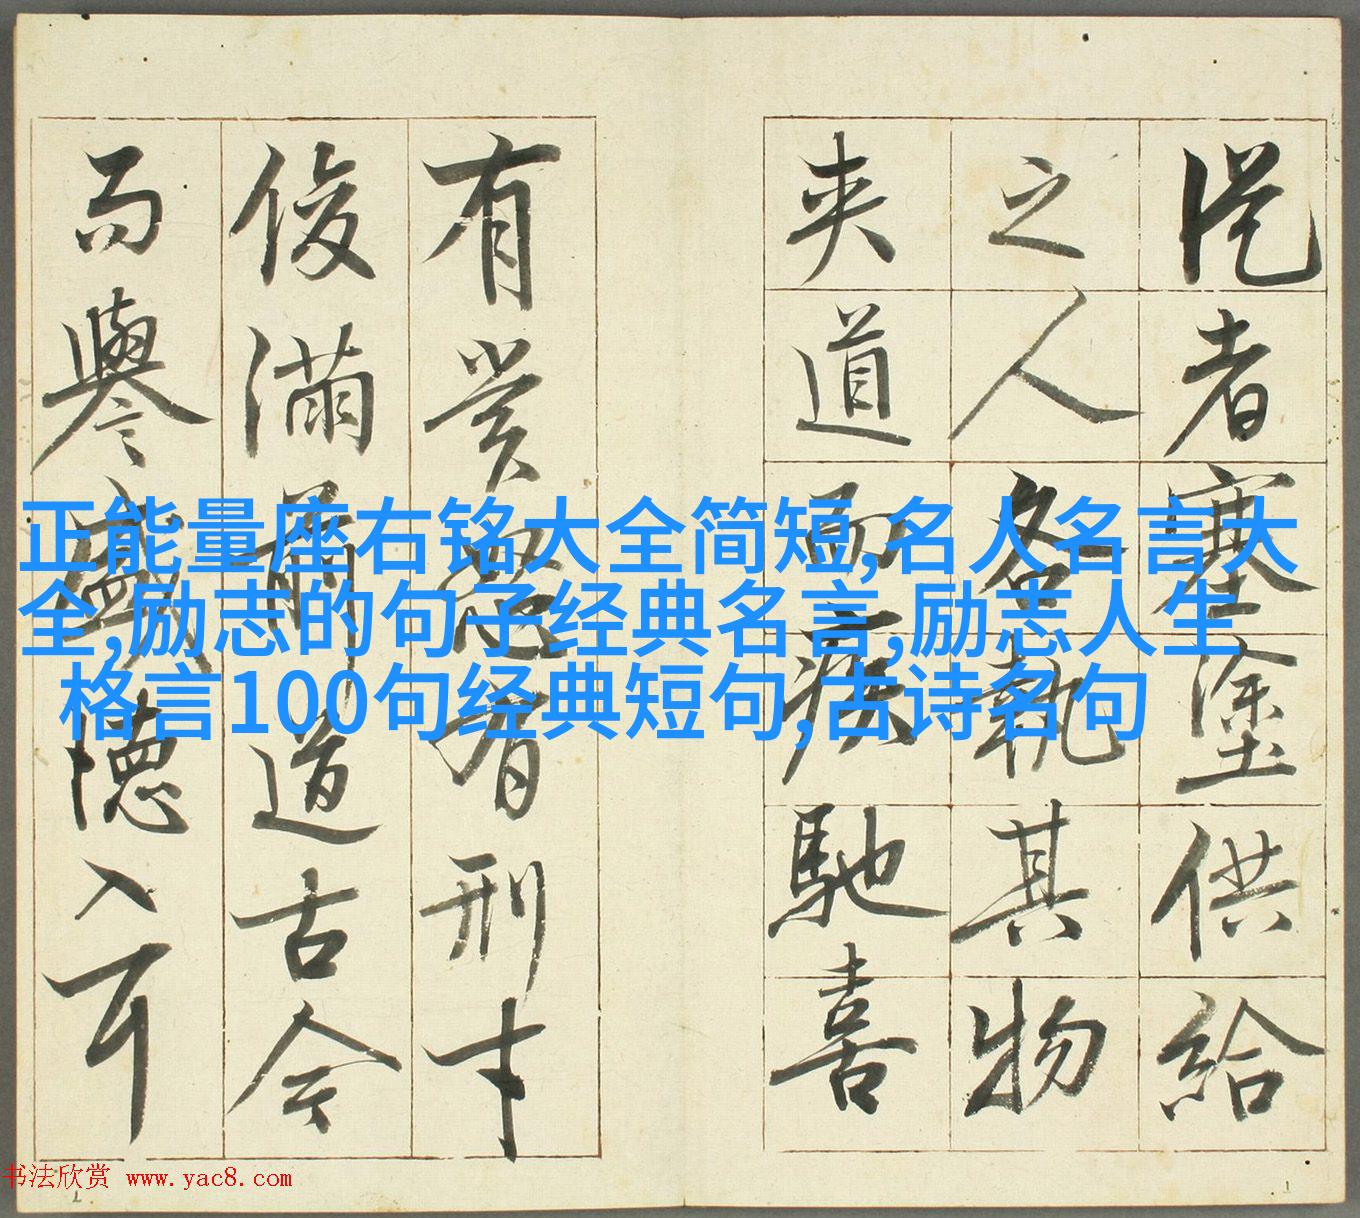 從者塞塗供給
之人各執其物
夾道而疾馳喜
有賞怒有刑才
俊滿前道古今
而譽盛德入耳
正能量座右铭大全简短,名人名言大
全,励志的句子经典名言,励志人生
格言100句经典短句,古诗名句
书法欣赏 www.yac8.com